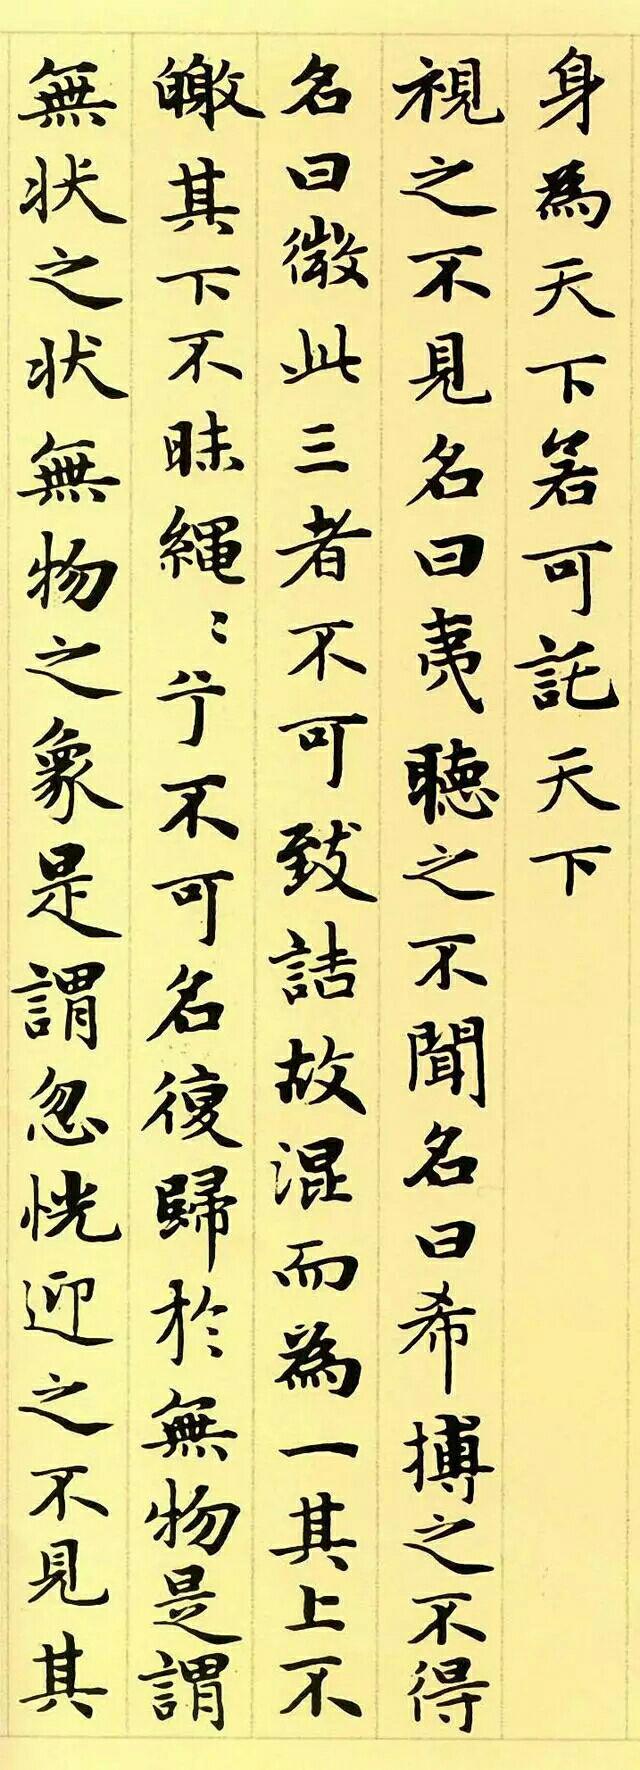 身為天下若可託天下
視之不見名曰夷聽之不聞名曰希搏之不得
名曰微此三者不可致詰故混而為一其上不
皦其下不昧繩〻兮不可名復歸於無物是謂
無状之状無物之象是謂忽恍迎之不見其